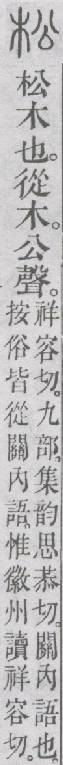 松
松木也。從木。公聲。
祥容切。九部。集韵思恭切。關內語也。
按俗皆從關內語。惟徽州讀祥容切。